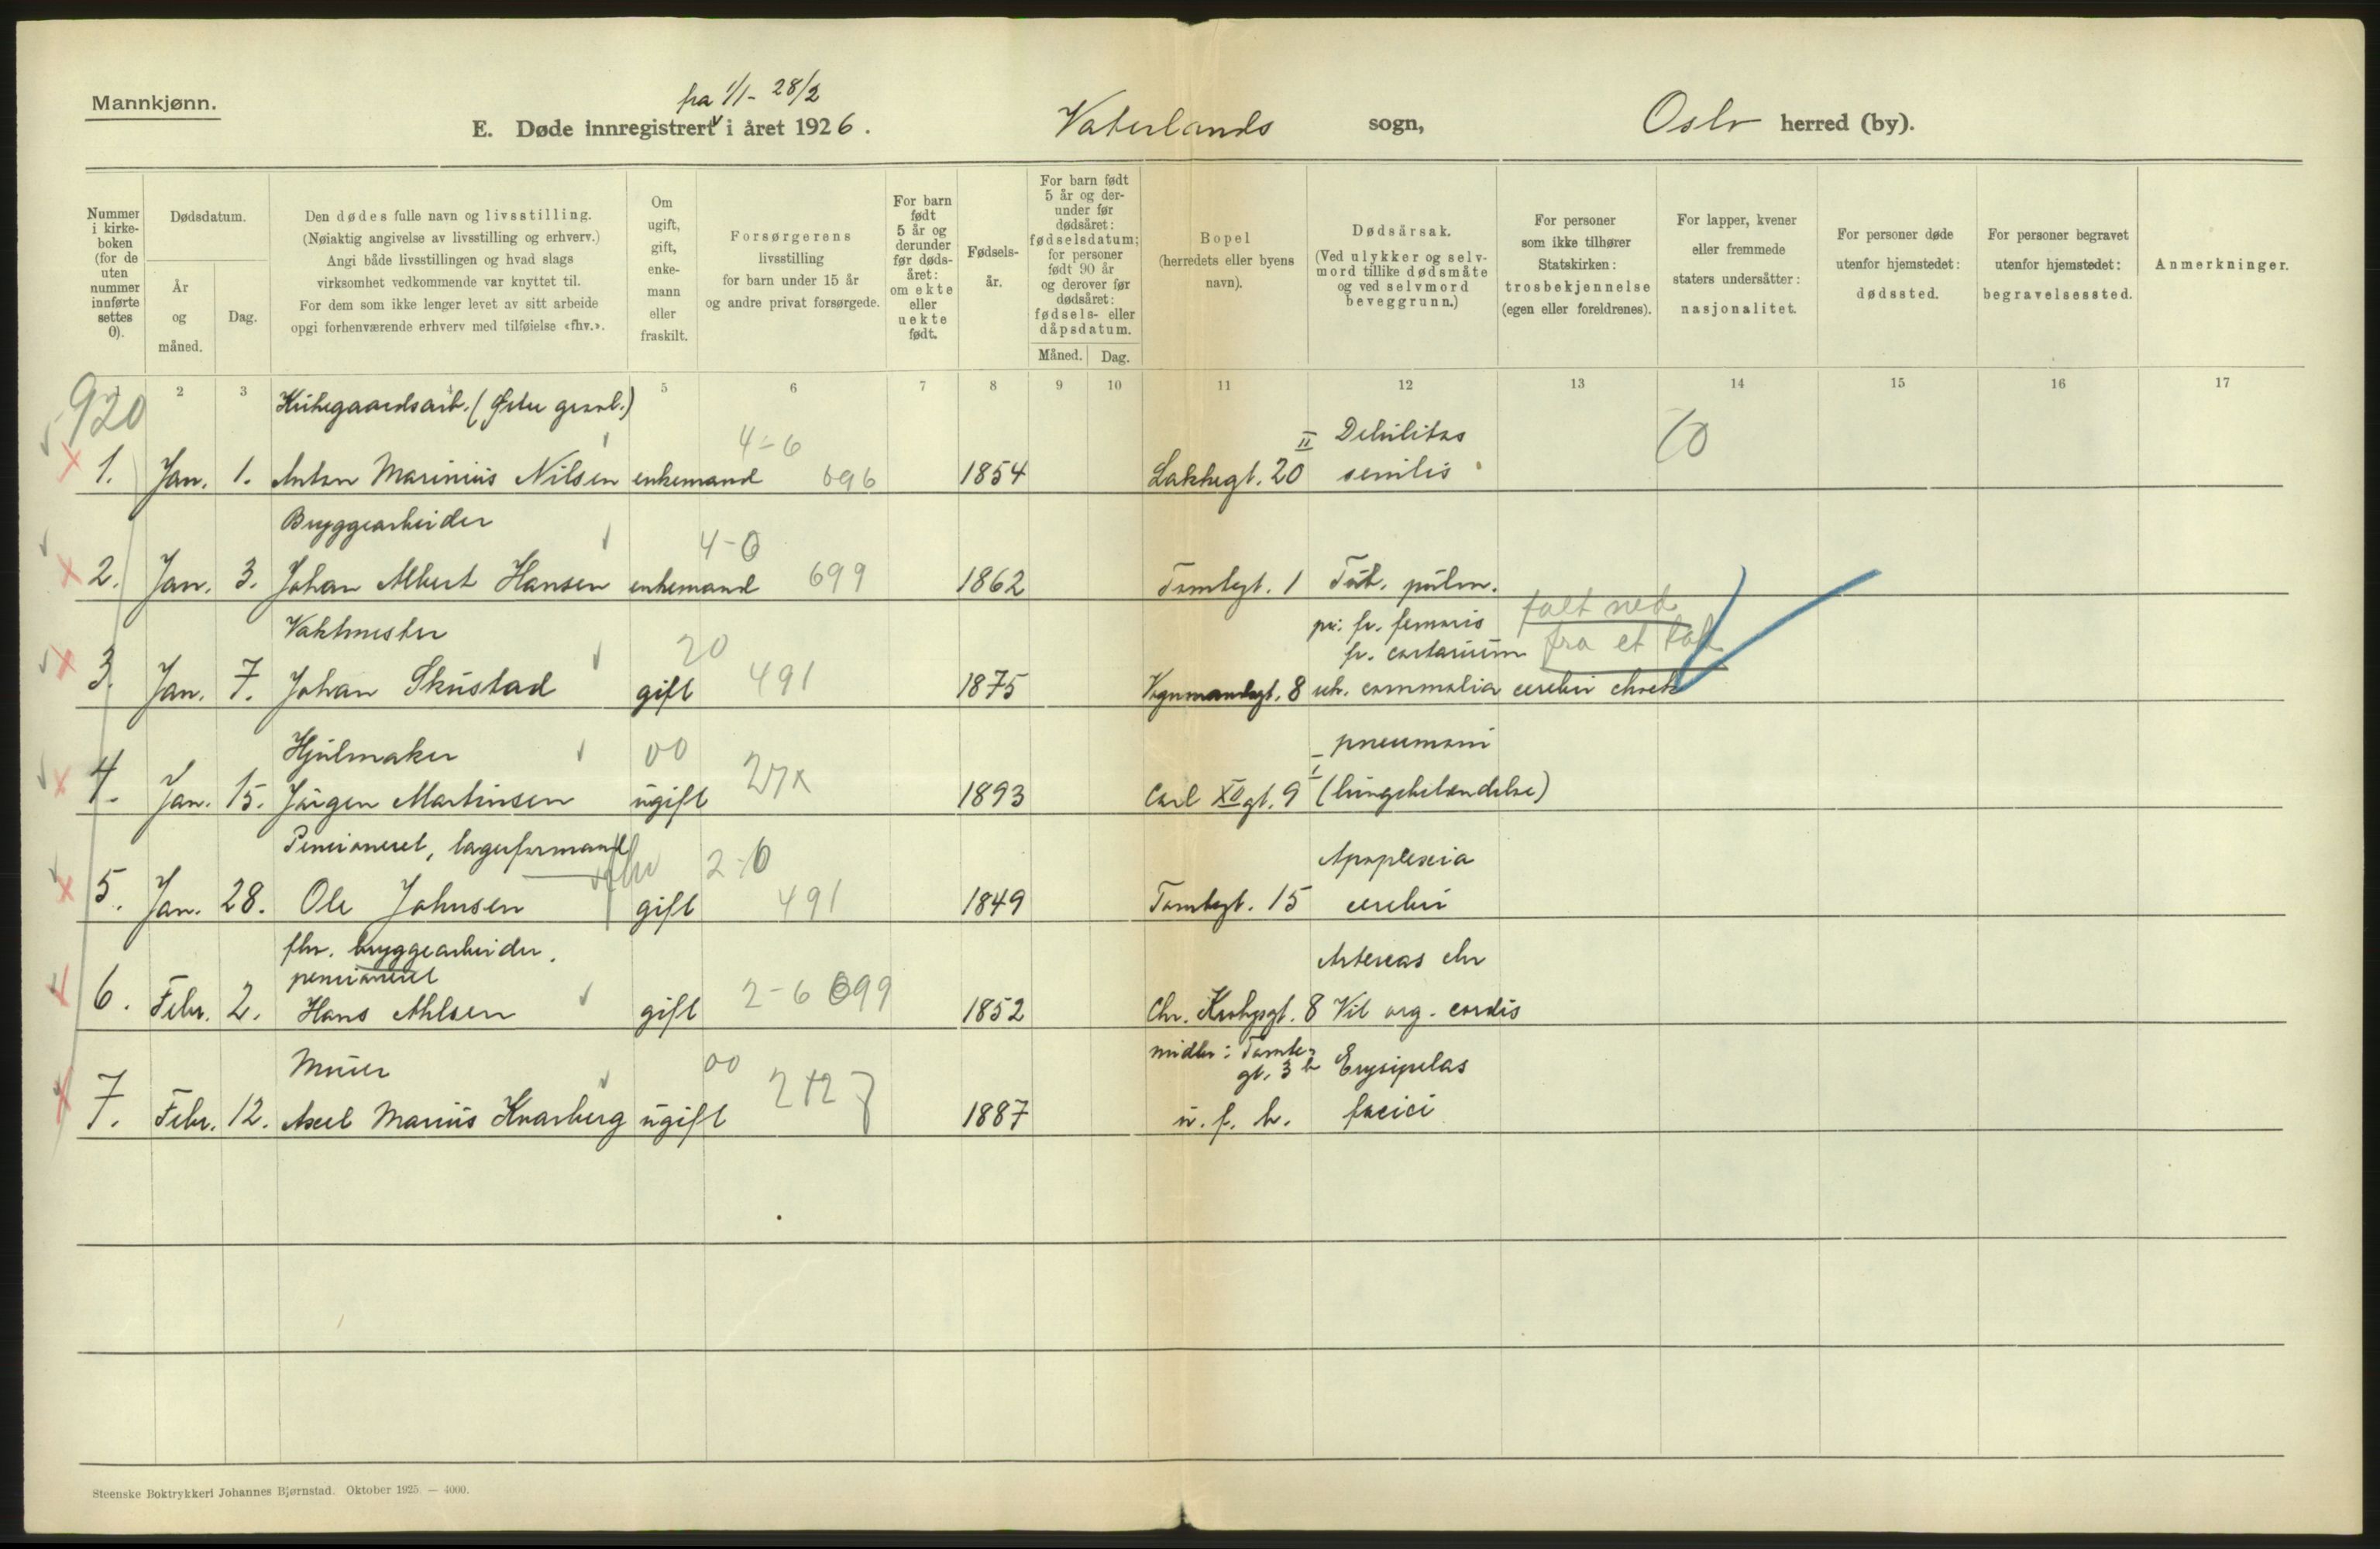 Mannkjønn.
fra 1/1 - 28/2
E. Døde innregistrert i året 1926.
Vaterlands sogn,
Oslo herred (by).
Nummer i kirke-boken (for de uten nummer innførte settes 0).
Dødsdatum.
År og måned.
Dag.
Den dødes fulle navn og livsstilling.
(Nøiaktig angivelse av livsstilling og erhverv.)
Angi både livsstillingen og hvad slags
virksomhet vedkommende var knyttet til.
For dem som ikke lenger levet av sitt arbeide
opgi forhenværende erhverv med tilføielse «fhv.».
Om ugift, gift, enke-mann eller fraskilt.
Forsørgerens
livsstilling
for barn under 15 år
og andre privat forsørgede.
For barn født 5 år og derunder før døds-året: om ekte eller uekte født.
Fødsels-år.
For barn født 5 år og der-under før dødsåret: fødselsdatum; for personer født 90 år og derover før dødsåret: fødsels- eller dåpsdatum.
Måned.
Dag.
Bopel
(herredets eller byens
navn).
Dødsårsak.
(Ved ulykker og selv-
mord tillike dødsmåte
og ved selvmord
beveggrunn.)
For personer
som ikke tilhører
Statskirken:
trosbekjennelse
(egen eller foreldrenes).
For lapper, kvener
eller fremmede
staters undersåtter:
nasjonalitet.
For personer døde
utenfor hjemstedet:
dødssted.
For personer begravet
utenfor hjemstedet:
begravelsessted.
Anmerkninger.
1 2 3 4 5 6 7 8 9 10 11 12 13 14 15 16 17
920
Kirkegaardsarb. (Østre gravl.)
4-6
II Debilitas
1. Jan. 1. Anton Marinius Nilsen enkemand 696 1854 Lakkegt. 20 senilis
Bryggearbeider
4-6
2. Jan. 3. Johan Albert Hansen enkemand 699 1862 Tomtegt. 1 Tub. pulm.
Vaktmester
20
fr. femoris
falt ned
fr. costarum
fra et tak
3. Jan. 7. Johan Skustad gift 491 1875 Vognmandsgt. 8 commotio cerebri
Hjulmaker
00
pneumoni
4. Jan. 15. Jørgen Martinsen ugift 1893 Carl XII gt. 9 (lungebetændelse)
Pensioneret, lagerformand
fhv
2-6
Apoplexia
5. Jan. 28. Ole Johnsen gift 491 1849 Tomtegt. 15 cerebri
fhv. bryggearbeider,
pensioneret
6. Febr. 2. Hans Ahlsen gift 2-6 699 1852 Chr. Krohgsgt. 8 Vit org. cordis
Murer
00
midler: Tomte-
gt. 3 b
Erysipelas
7. Febr. 12. Axel Marius Kvarberg ugift 1887 u. f. b. faciei
Steenske Boktrykkeri Johannes Bjørnstad. Oktober 1925. — 4000.